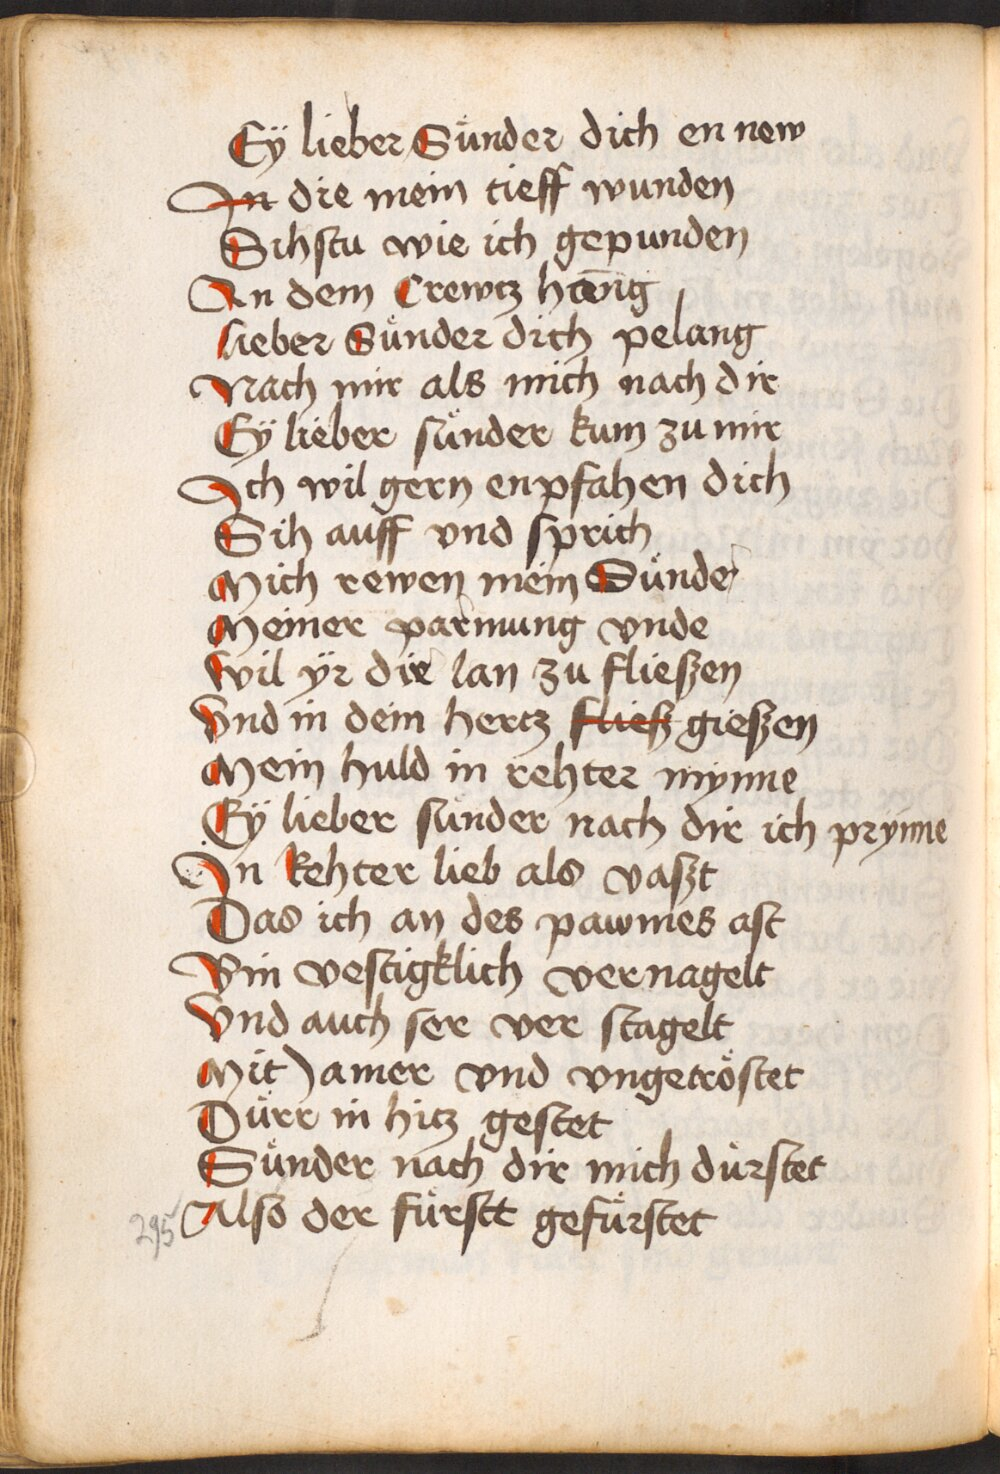 Eÿ lieber Sünder dich en new
In die mein tieff wunden
Sihstu wie ich gepunden
An dem Crewtz hāng
lieber Sünder dich pelang
Nach mir als mich nach dir
Eÿ lieber sünder kum zu mir
Ich wil gern enpfahen dich
Sih auff vnd sprich
Mich rewen mein Sünde
Meiner parmung vnde
wil ÿr die lan zu flieszen
Vnd in dein hertz fliesz gieszen
Mein huld in rehter mynne
Eÿ lieber sünder nach dir ich prynne
In Rehter lieb als vaszt
Das ich an des pawmes ast
Bin vestigklich vernagelt
Vnd auch ser ver stagelt
Mit Jamer vnd vngetröstet
Dürr in hitz gestet
Sünder nach dir mich dürstet
Also der fürstt gefürstet
295